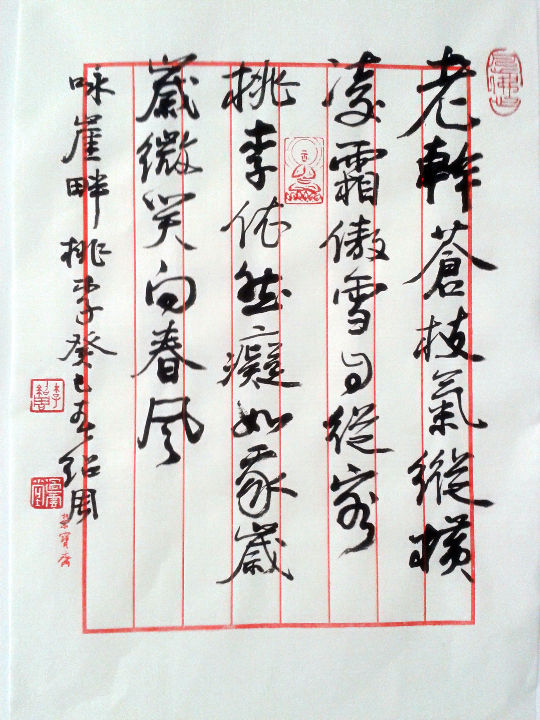 老幹蒼枝氣縱橫
凌霜傲雪自從容
桃李依然癡如我歲
歲微笑向春風
咏崖畔桃李癸巳春紹周
榮寶齋